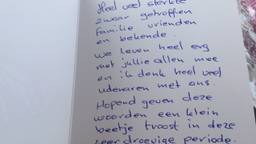 Heel veel sterkte
zwaar getroffen
familie vrienden
en bekende.
We leven heel erg
met jullie allen mee
en ik denk heel veel
udenaren met ons.
Hopend geven deze
woorden een klein
beetje troost in deze
zeer droevige periode.